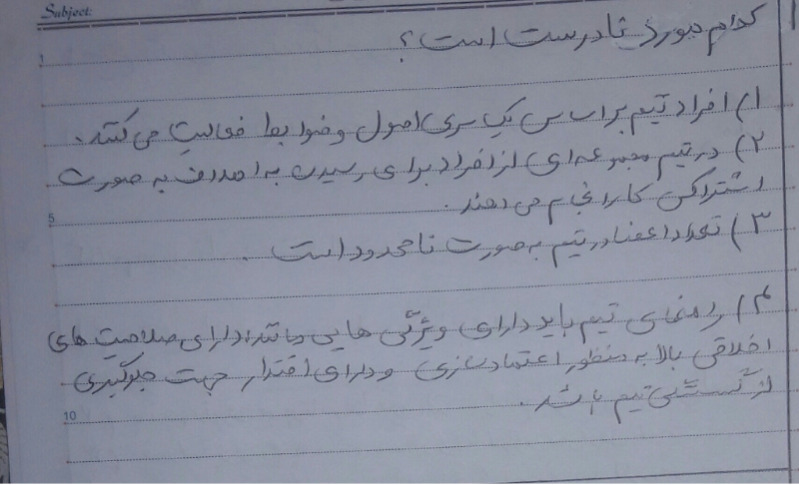 Subject:
کدام مورد نادرست است؟
1
۱) افراد تیم بر اساس یک سری اصول و ضوابط فعالیت می کنند.
۲) در تیم مجموعه ای از افراد برای رسیدن به اهداف به صورت
اشتراکی کار انجام می دهند.
5
۳) تعداد اعضا در تیم به صورت نامحدود است.
۴) راهنمای تیم باید دارای ویژگی هایی مانند: دارای صلاحیت های
اخلاقی بالا به منظور اعتمادسازی و دارای اقتدار جهت جلوگیری
از گسستگی تیم باشد.
10